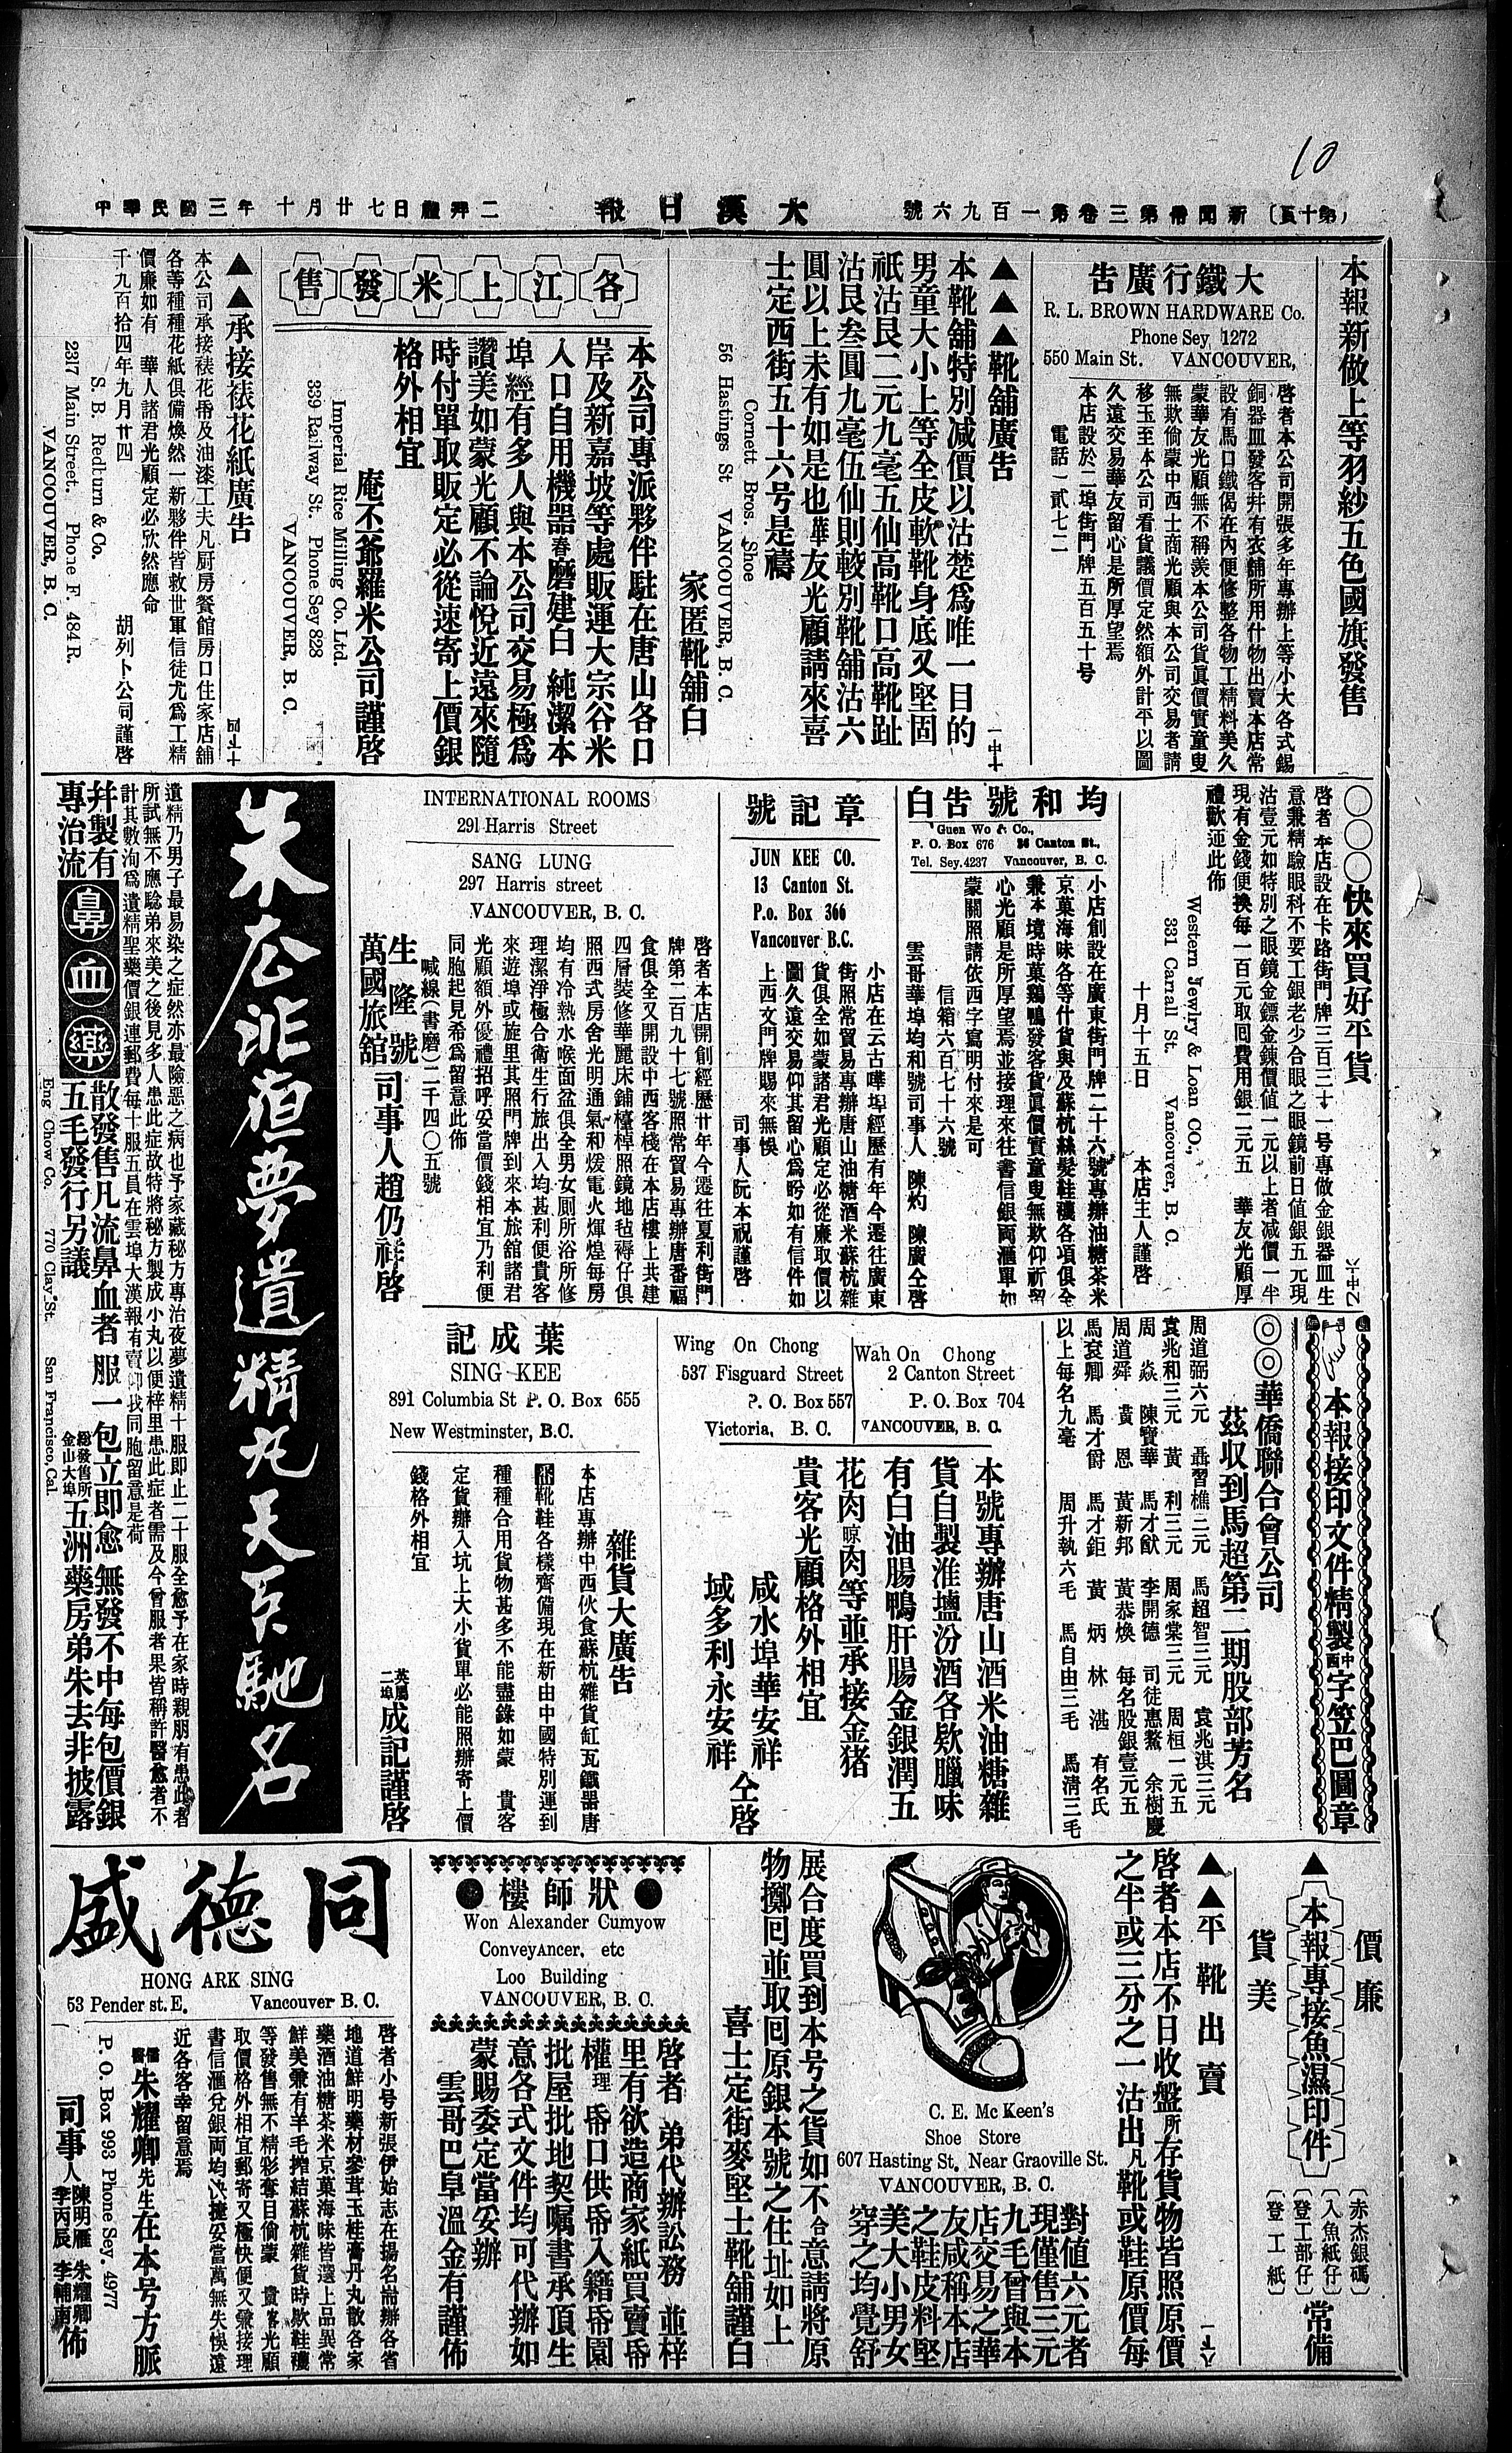 10
（第十頁）新聞帋第三卷第一百九六號
大漢日報
中華民國三年十月廿七日禮拜二
本報新做上等羽紗五色國旗發售
大鐵行廣告
R. L. BROWN HARDWARE Co.
Phone Sey 1272
550 Main St. VANCOUVER,
啓者本公司開張多年專辦上等小大各式錫
銅器皿發客幷有衣鋪所用什物出賣本店常
設有馬口鐵偈在內便修整各物工精料美久
蒙華友光顧無不稱羨本公司貨眞價實童叟
無欺倘蒙中西士商光顧與本公司交易者請
移玉至本公司看貨議價定然額外計平以圖
久遠交易華友留心是所厚望焉
本店設於二埠街門牌五百五十号
電話一貳七二
▲▲▲靴舖廣告
本靴舖特別减價以沽楚爲唯一目的
男童大小上等全皮軟靴身底又堅固
祇沽艮二元九毫五仙高靴口高靴趾
沽艮叁圓九毫伍仙則較別靴舖沽六
圓以上未有如是也華友光顧請來喜
士定西街五十六号是禱
Cornett Bros. Shoe
56 Hastings St VANCOUVER, B. C.
家匿靴舖白
各江上米發售
本公司專派夥伴駐在唐山各口
岸及新嘉坡等處販運大宗谷米
入口自用機器舂磨建白 純潔本
埠經有多人與本公司交易極爲
讚美如蒙光顧不論悅近遠來隨
時付單取販定必從速寄上價銀
格外相宜
庵不爺羅米公司謹啓
Imperial Rice Milling Co. Ltd.
339 Railway St. Phone Sey 828
VANCOUVER, B. C.
▲▲承接裱花紙廣告
本公司承接裱花帋及油漆工夫凡厨房餐館房口住家店舖
各等種種花紙俱備煥然一新夥伴皆救世軍信徒尤爲工精
價廉如有 華人諸君光顧定必欣然應命
千九百拾四年九月廿四
胡列卜公司謹啓
S. B. Redburn & Co.
2317 Main Street. Phone F. 484 R.
VANCOUVER, B. C.
○○○快來買好平貨
啓者本店設在卡路街門牌三百三十一号專做金銀器皿生
意兼精驗眼科不要工銀老少合眼之眼鏡前日値銀五元現
沽壹元如特別之眼鏡金鏢金鍊價値一元以上者减價一半
現有金錢便換每一百元取囘費用銀二元五 華友光顧厚
禮歡迊此佈
Western Jewlry & Loan CO.,
331 Carrall St. Vancouver, B. C.
十月十五日 本店主人謹啓
均和號告白
Guen Wo & Co.,
P. O. Box 676 26 Canton St.,
Tel. Sey. 4237 Vancouver, B. C.
小店創設在廣東街門牌二十六號專辦油糖茶米
京菓海味各等什貨與及蘇杭絲髮鞋襪各項俱全
兼本境時菓鷄鴨發客貨眞價實童叟無欺仰祈留
心光顧是所厚望焉並接理來往書信銀両滙單如
蒙關照請依西字寫明付來是可
信箱六百七十六號
雲哥華埠均和號司事人 陳灼 陳廣仝啓
章記號
JUN KEE CO.
13 Canton St.
P.o. Box 366
Vancouver B.C.
小店在云古嘩埠經歷有年今遷往廣東
街照常貿易專辦唐山油糖酒米蘇杭雜
貨俱全如蒙諸君光顧定必從廉取價以
圖久遠交易仰其留心爲盼如有信件如
上西文門牌賜來無悞
司事人阮本祝謹啓
INTERNATIONAL ROOMS
291 Harris Street
SANG LUNG
297 Harris street
VANCOUVER, B. C.
啓者本店開創經歷廿年今遷往夏利街門
牌第二百九十七號照常貿易專辦唐番福
食俱全又開設中西客棧在本店樓上共建
四層裝修華麗床鋪檯棹照鏡地毡褥仔俱
照西式房舍光明通氣和煖電火煇煌每房
均有冷熱水喉面盆俱全男女厠所浴所修
理潔淨極合衛生行旅出入均甚利便貴客
來遊埠或旋里其照門牌到來本旅舘諸君
光顧額外優禮招呼妥當價錢相宜乃利便
同胞起見希爲留意此佈
喊線（書磨）二千四〇五號
生隆號
萬國旅舘
司事人趙仍祥啓
朱去非夜夢遺精丸天下馳名
遺精乃男子最易染之症然亦最險惡之病也予家藏秘方專治夜夢遺精十服即止二十服全愈予在家時親朋有患此者
所試無不應騐弟來美之後見多人患此症故特將秘方製成小丸以便梓里患此症者需及今曾服者果皆稱許醫愈者不
計其數洵爲遺精聖藥價銀連郵費每十服五員在雲埠大漢報有賣仰我同胞留意是荷
幷製有專治流
鼻血藥
散發售凡流鼻血者服一包立即愈無發不中每包價銀
五毛發行另議
總發售所金山大埠
五洲藥房弟朱去非披露
Eng Chow Co. 770 Clay St. San Francisco, Cal.
本報接印文件精製中西字笠巴圖章
◎◎華僑聯合會公司
茲收到馬超第二期股部芳名
周道弼六元 聶習樵二元 馬超智三元 袁兆淇三元
袁兆和三元 黃 利三元 周家棠三元 周桓一元五
周 焱 陳寶華 馬才猷 李開德 司徒惠鰲 余樹慶
周道舜 黃 恩 黃新邦 黃恭煥 每名股銀壹元五
馬袞卿 馬才爵 馬才鉅 黃 炳 林 湛 有名氏
以上每名九毫 周升執六毛 馬自由三毛 馬淸三毛
Wah On Chong
2 Canton Street
P. O. Box 704
VANCOUVER, B. C.
Wing On Chong
537 Fisguard Street
P. O. Box 557
Victoria, B. C.
本號專辦唐山酒米油糖雜
貨自製淮塩汾酒各欵臘味
有白油腸鴨肝腸金銀潤五
花肉晾肉等並承接金猪
貴客光顧格外相宜
咸水埠華安祥
域多利永安祥
仝啓
葉成記
SING KEE
891 Columbia St P. O. Box 655
New Westminster, B.C.
雜貨大廣告
本店專辦中西伙食蘇杭雜貨缸瓦鐵器唐
靴鞋各樣齊備現在新由中國特別運到
種種合用貨物甚多不能盡錄如蒙 貴客
定貨辦入坑上大小貨單必能照辦寄上價
錢格外相宜
英屬二埠成記謹啓
價廉
▲本報專接魚濕印件
貨美
（赤杰銀碼）
（入魚紙仔）
（登工部仔）
（登工紙）
常備
▲▲平靴出賣
啓者本店不日收盤所存貨物皆照原價
之半或三分之一沽出凡靴或鞋原價每
對值六元者
現僅售三元
九毛曾與本
店交易之華
友咸稱本店
之鞋皮料堅
美大小男女
穿之均覺舒
C. E. Mc Keen's
Shoe Store
607 Hasting St. Near Graoville St.
VANCOUVER, B. C.
展合度買到本号之貨如不合意請將原
物擲囘並取囘原銀本號之住址如上
喜士定街麥堅士靴舖謹白
●狀師樓●
Won Alexander Cumyow
ConveyAncer, etc
Loo Building
VANCOUVER, B. C.
啓者 弟代辦訟務 並梓
里有欲造商家紙買賣帋
權理 帋口供帋入籍帋園
批屋批地契嘱書承頂生
意各式文件均可代辦如
蒙賜委定當妥辦
雲哥巴阜溫金有謹佈
同德盛
HONG ARK SING
53 Pender st. E. Vancouver B. C.
啓者小号新張伊始志在揚名耑辦各省
地道鮮明藥材參茸玉桂膏丹丸散各家
藥酒油糖茶米京菓海味皆選上品異常
鮮美兼有羊毛搾結蘇杭雜貨時欵鞋襪
等發售無不精彩奪目倘蒙 貴客光顧
取價格外相宜郵寄又極快便又兼接理
書信滙兌銀両均快捷妥當萬無失悞遠
近各客幸留意焉
儒醫朱耀卿先生在本号方脈
P. O. Box 993 Phone Sey. 4977
司事人陳明雁 朱耀卿
李丙辰 李輔南佈